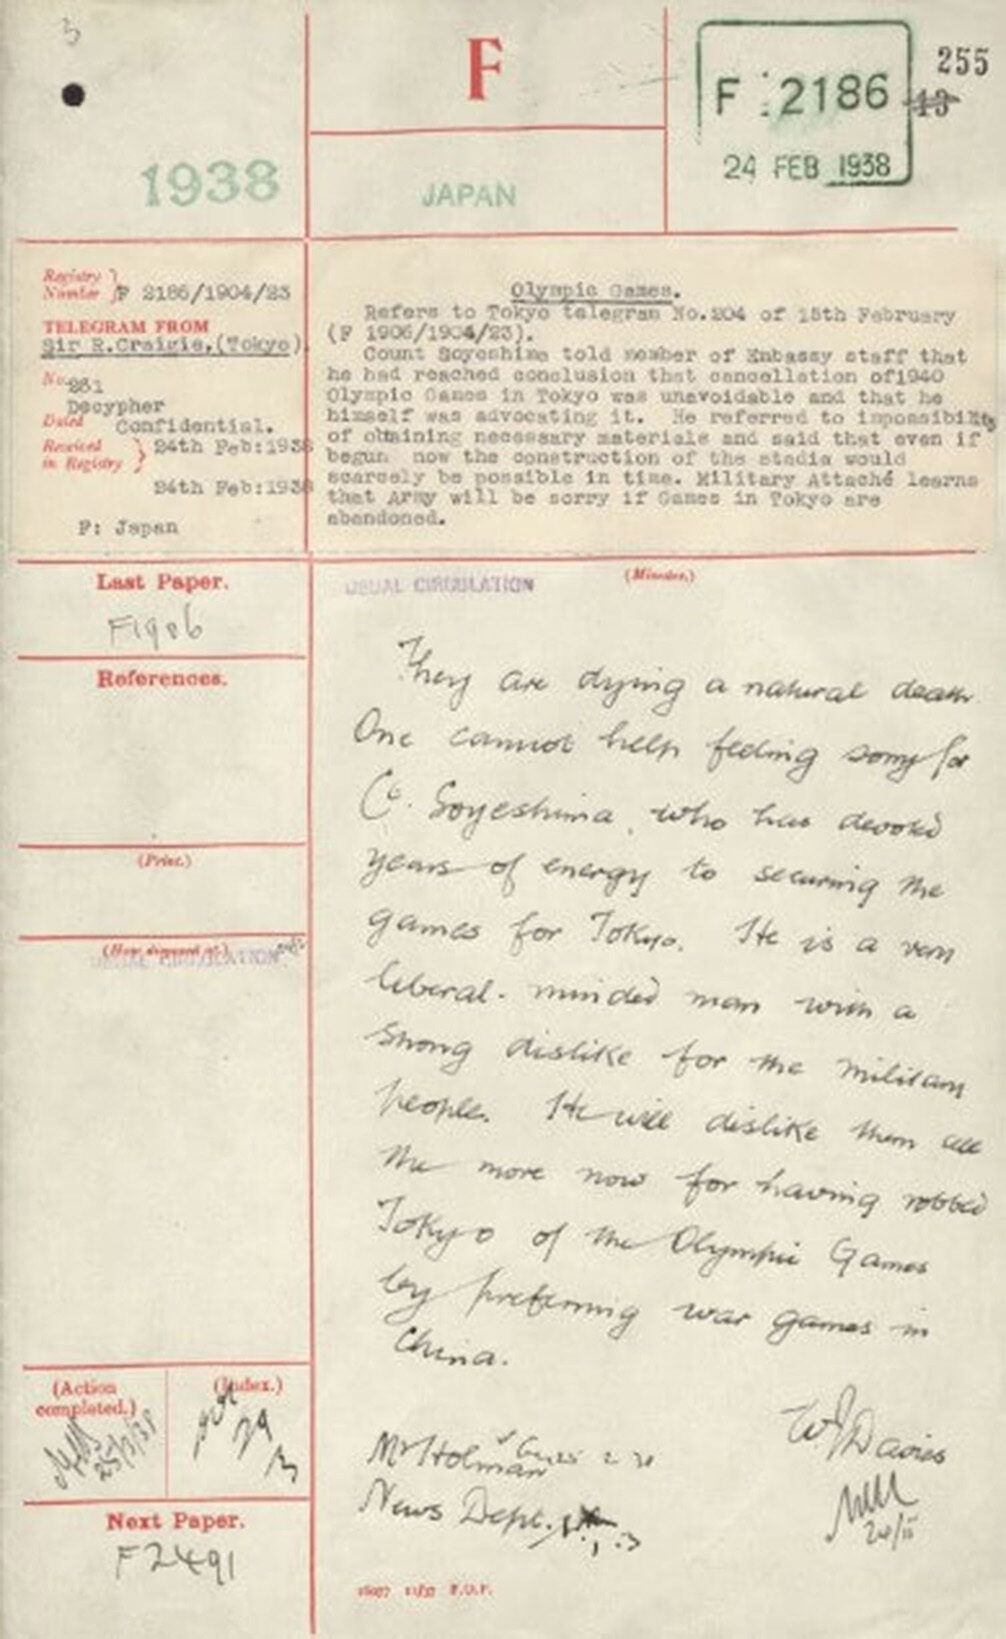 5
F
F 2186
255
13
24 FEB 1938
1938
JAPAN
Registry Number } F 2186/1904/23
TELEGRAM FROM
Sir R.Craigie,(Tokyo)
No. 231
Decypher
Dated Confidential.
Received in Registry } 24th Feb:1938
24th Feb:1938
F: Japan
Olympic Games.
Refers to Tokyo telegram No.204 of 15th February
(F 1906/1904/23).
Count Soyeshima told member of Embassy staff that
he had reached conclusion that cancellation of1940
Olympic Games in Tokyo was unavoidable and that he
himself was advocating it. He referred to impossibility
of obtaining necessary materials and said that even if
begun now the construction of the stadia would
scarcely be possible in time. Military Attaché learns
that Army will be sorry if Games in Tokyo are
abandoned.
Last Paper.
F1906
References.
(Print.)
(How disposed of.)
USUAL CIRCULATION
(Action completed.)
25/3/38
(Index.)
Next Paper.
F2491
USUAL CIRCULATION
(Minutes.)
They are dying a natural death.
One cannot help feeling sorry for
Ct. Soyeshima, who has devoted
years of energy to securing the
games for Tokyo. He is a very
liberal-minded man with a
strong dislike for the military
people. He will dislike them all
the more now for having robbed
Tokyo of the Olympic Games
by preferring war games in
China.
W Davies
Mr Holman
News Dept.
F.O.P.